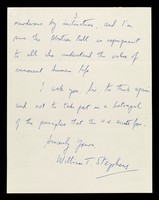 murderous by intuition, and I'm
sure the Abortion Bill is repugnant
to all who understand the value of
innocent human life.
I ask you, Sir to think again
and not to take part in a betrayal
of the principles that the U.K. exists for.
Sincerely Yours
William T Stephens